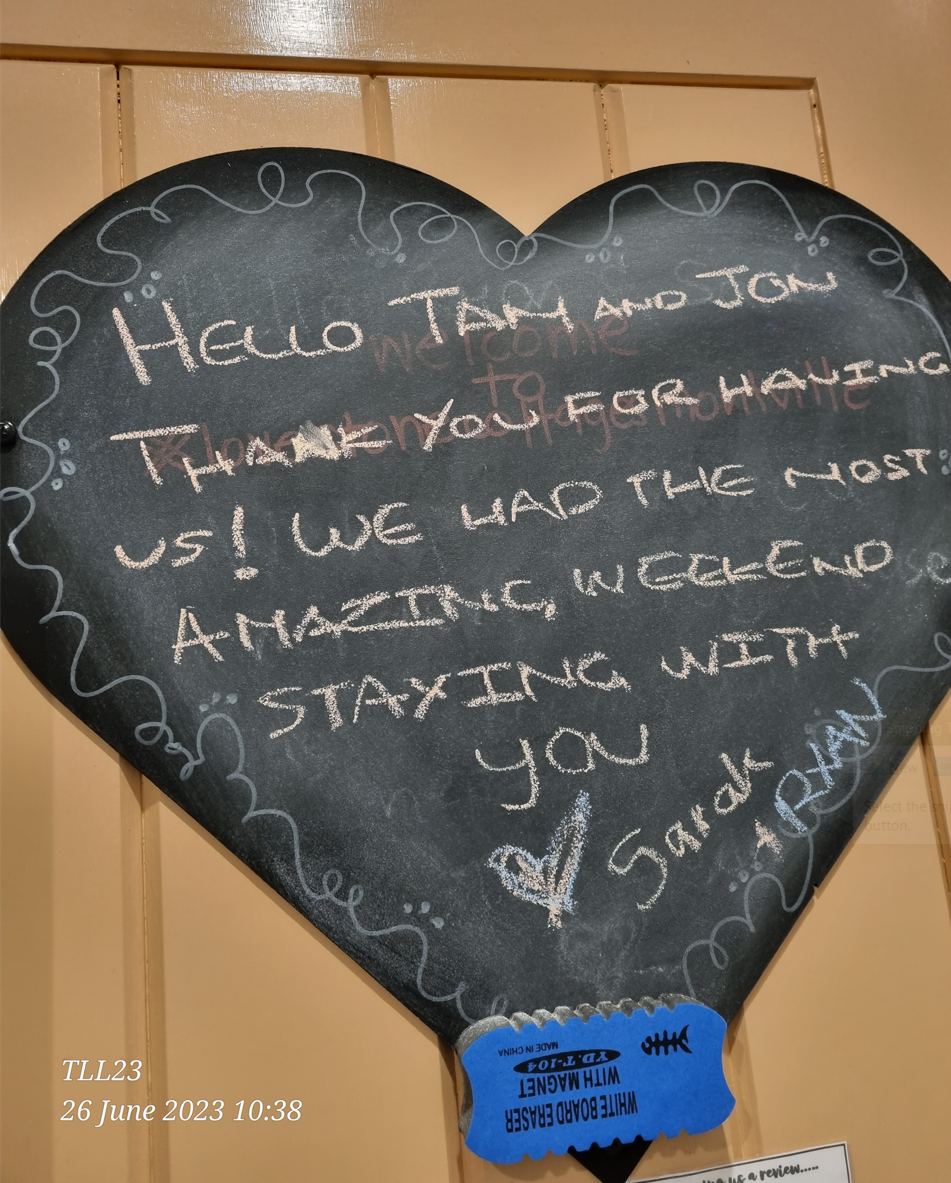 HELLO TAM AND JON
welcome
to
THANK YOU FOR HAVING
US! WE HAD THE MOST
AMAZING, WEEKEND
STAYING WITH
YOU
Sarah
+ RYAN
WHITE BOARD ERASER
WITH MAGNET
YD.T-104
MADE IN CHINA
TLL23
26 June 2023 10:38
us a review.....
Select the
button.